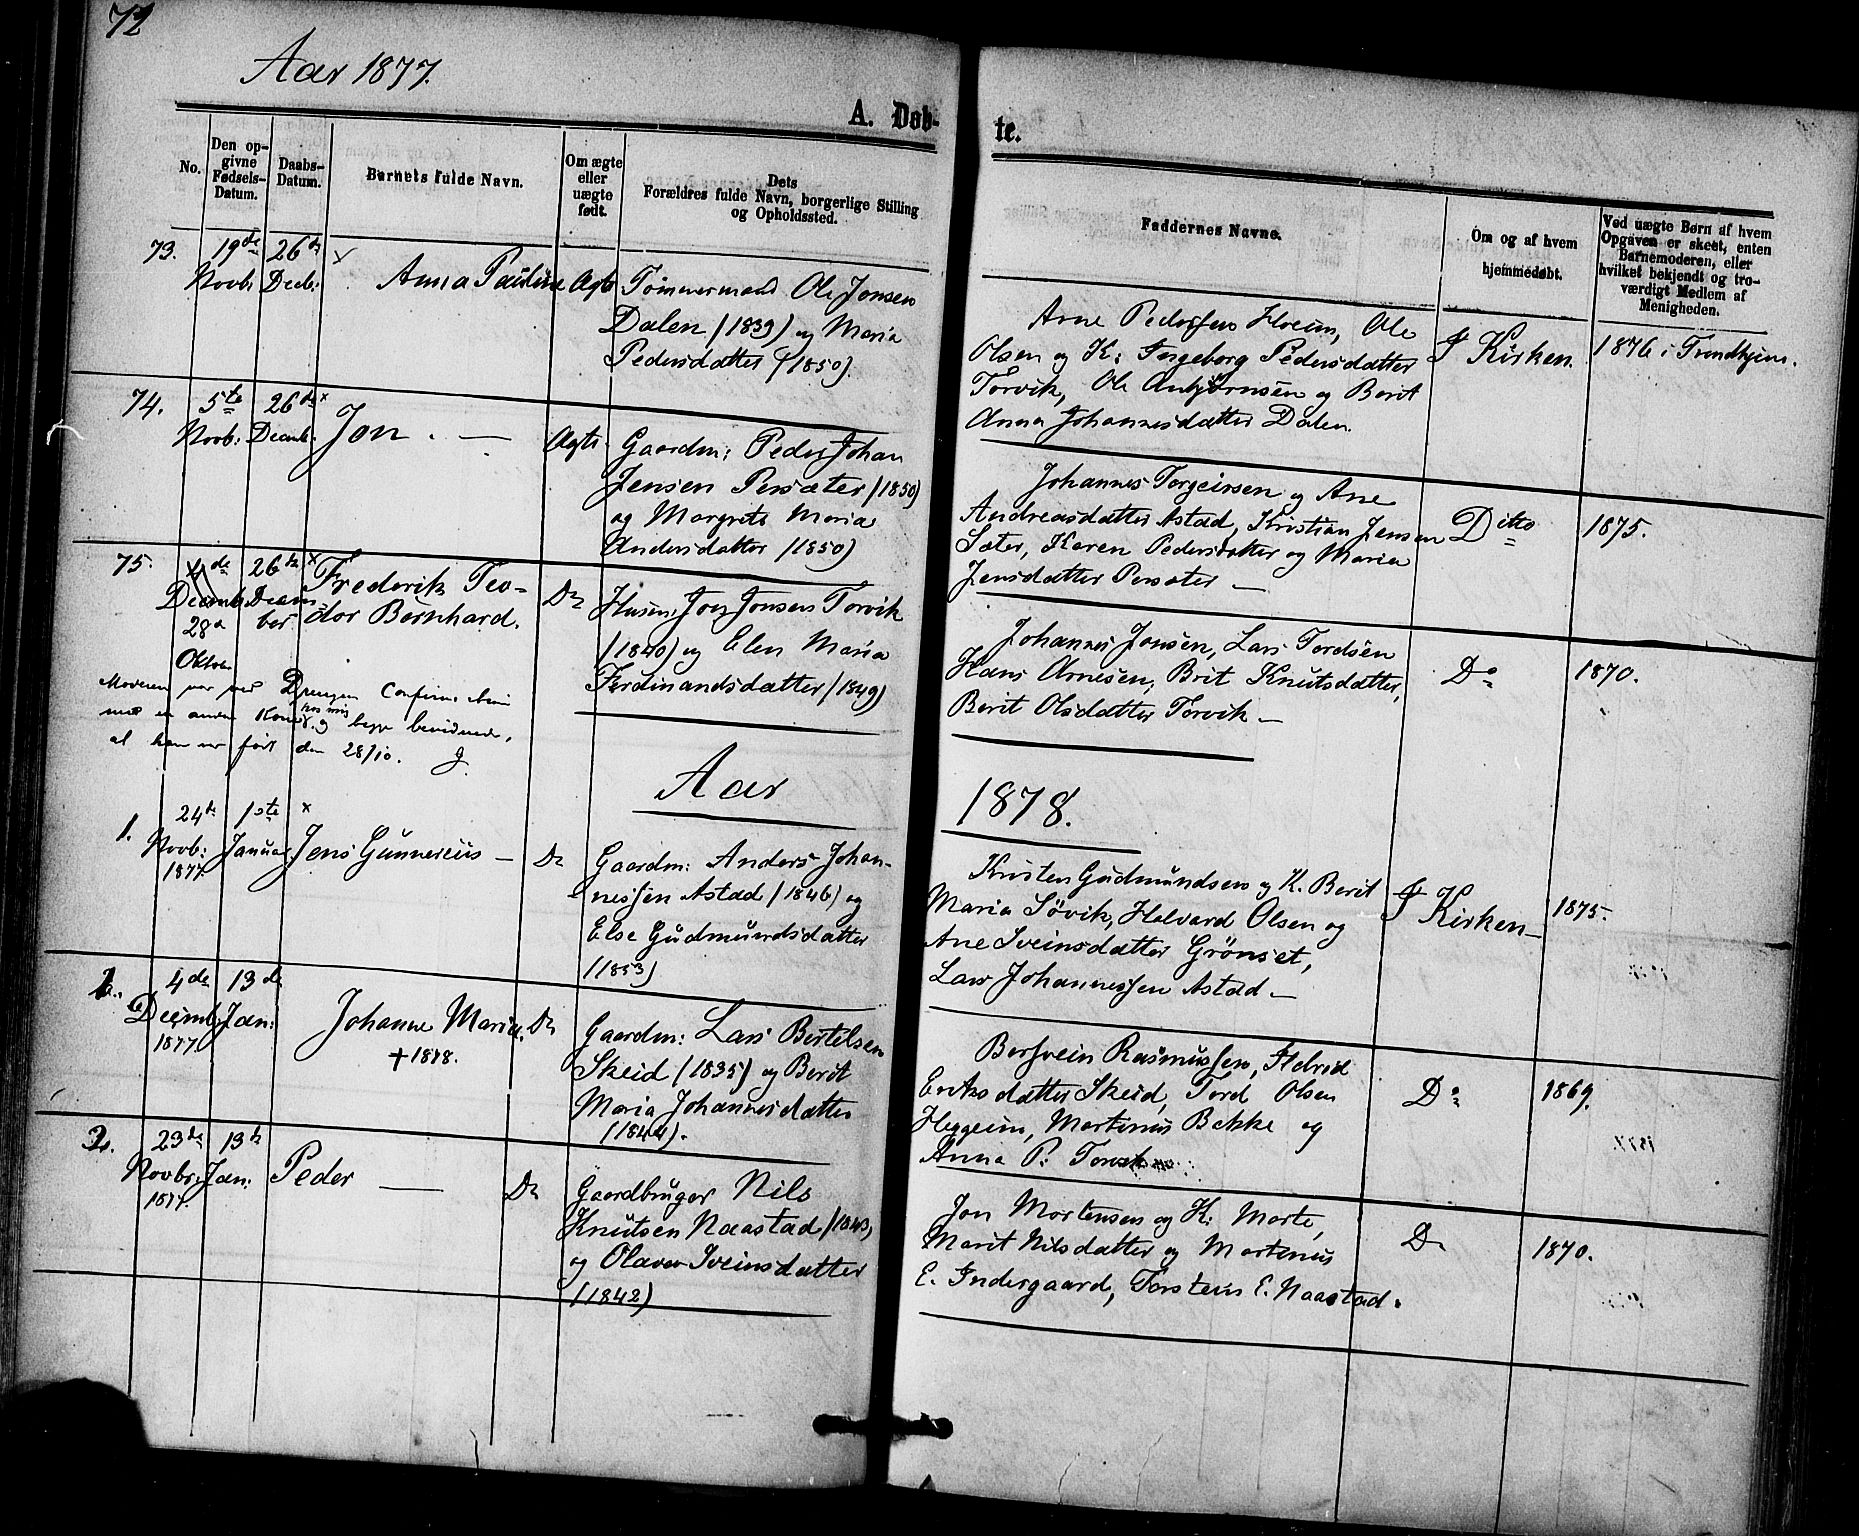 72
Aar 1877.
A. Døb-
te.
No.
Den op-
givne
Fødsels-
Datum.
Daabs-
Datum.
Barnets fulde Navn.
Om ægte
eller
uægte
født.
Dets
Forældres fulde Navn, borgerlige Stilling
og Opholdssted.
Faddernes Navne.
Om og af hvem
hjemmedøbt.
Ved uægte Børn af hvem
Opgaven er skeet, enten
Barnemoderen, eller
hvilket bekjendt og tro-
værdigt Medlem af
Menigheden.
73.
19de
Novb:
26de
Decb:
x
Anna Pauline
Ægte
Tømmermand Ole Jonsen
Dalen (1839) og Maria
Pedersdatter (1850).
Arne Pederssen Hoem, Ole
Olsen og K: Ingeborg Pedersdatter
Torvik, Ole Anbjørnsen og Berit
Anna Johannesdatter Dalen.
I Kirken.
1876 i Trondhjem.
74.
5te
Novb:
26de x
Decemb.
Jon. —
Ægte
Gaardm: Peder Johan
Jensen Persæter (1850)
og Margrete Maria
Andersdatter (1850)
Johannes Torgeirsen og Ane
Andreasdatter Astad, Kristian Jensen
Sæter, Karen Pedersdatter og Maria
Jensdatter Persæter —
Ditto
1875.
75.
4de
Decemb.
28de
Oktob.
26de x
Decem-
ber
Frederik Teo-
dor Bernhard.
Do
Husm: Jon Jonsen Torvik
(1840) og Elen Maria
Ferdinandsdatter (1849)
Johannes Jonsen, Lars Tordsen
Hans Arnesen, Brit Knutsdatter,
Berit Olsdatter Torvik —
Do
1870.
Moderen var ved Drengen Confirm.
med en anden Kone hos mig og begge bevidnede,
at han var født den 28/10. J.
Aar
1878.
1.
24de
Novb:
1877.
1ste x
Januar
Jens Gunnerius —
Do
Gaardm: Anders Johan-
nessen Astad (1846) og
Else Gudmundsdatter
(1853)
Kristen Gudmundsen og K. Berit
Maria Søvik, Halvard Olsen og
Ane Sveinsdatter Grønset,
Lars Johannessen Astad —
I Kirken —
1875.
2.
4de
Decemb.
1877.
13de
Jan:
Johanne Maria.
† 1878.
Do
Gaardm: Lars Bertilsen
Skeid (1835) og Berit
Maria Johannesdatter
(1844).
Bersvein Rasmussen, Ildrid
Eriksdatter Skeid, Tord Olsen
Heggeim, Martinus Bakke og
Anna P: Torvik
Do
1869.
3.
23de
Novbr:
1877.
13de
Jan:
Peder —
Do
Gaardbruger Nils
Knutsen Naastad (1843)
og Olava Sveinsdatter
(1842)
Jon Mortensen og K: Marte,
Marit Nilsdatter og Martinus
E. Indergaard, Torstein E. Naastad.
Do
1870.